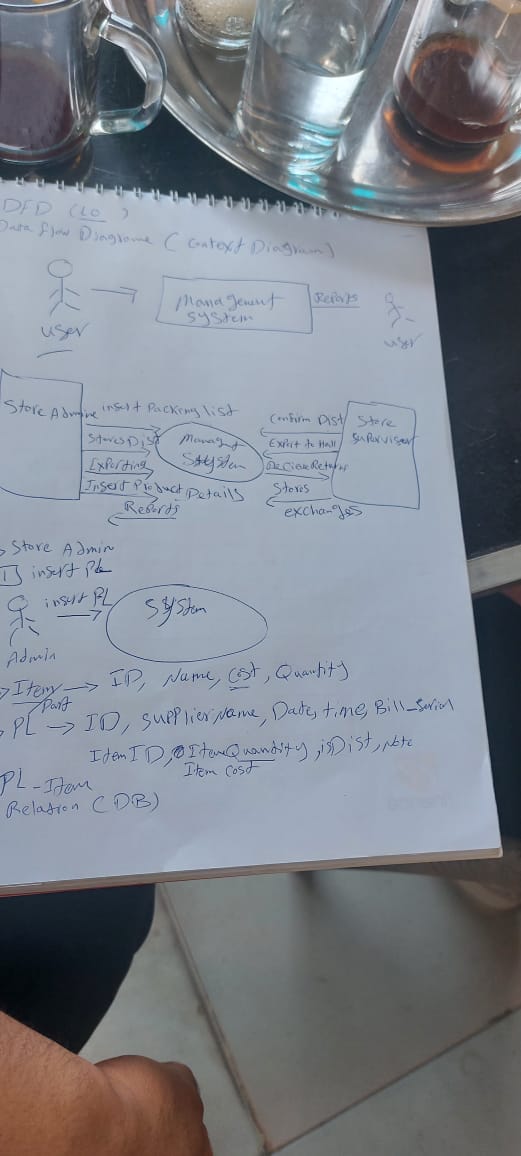 DFD (L0)
Data flow Diagrame (Context Diagram)
Management
system
Reports
user
user
Store Admine
insert Packing list
Stores Dist
Exporting
Insert Product Details
Reports
Managment
System
Confirm Dist
Export to Hall
Stores
exchanges
Store
supervisor
Store Admin
1 insert PL
insert PL
System
Admin
Item → ID, Name, Cost, Quantity
Part
PL → ID, supplierName, Date, time, Bill_Serial
ItemID, ItemQuandity, isDist, Note
Item cost
PL-Item
Relation (DB)